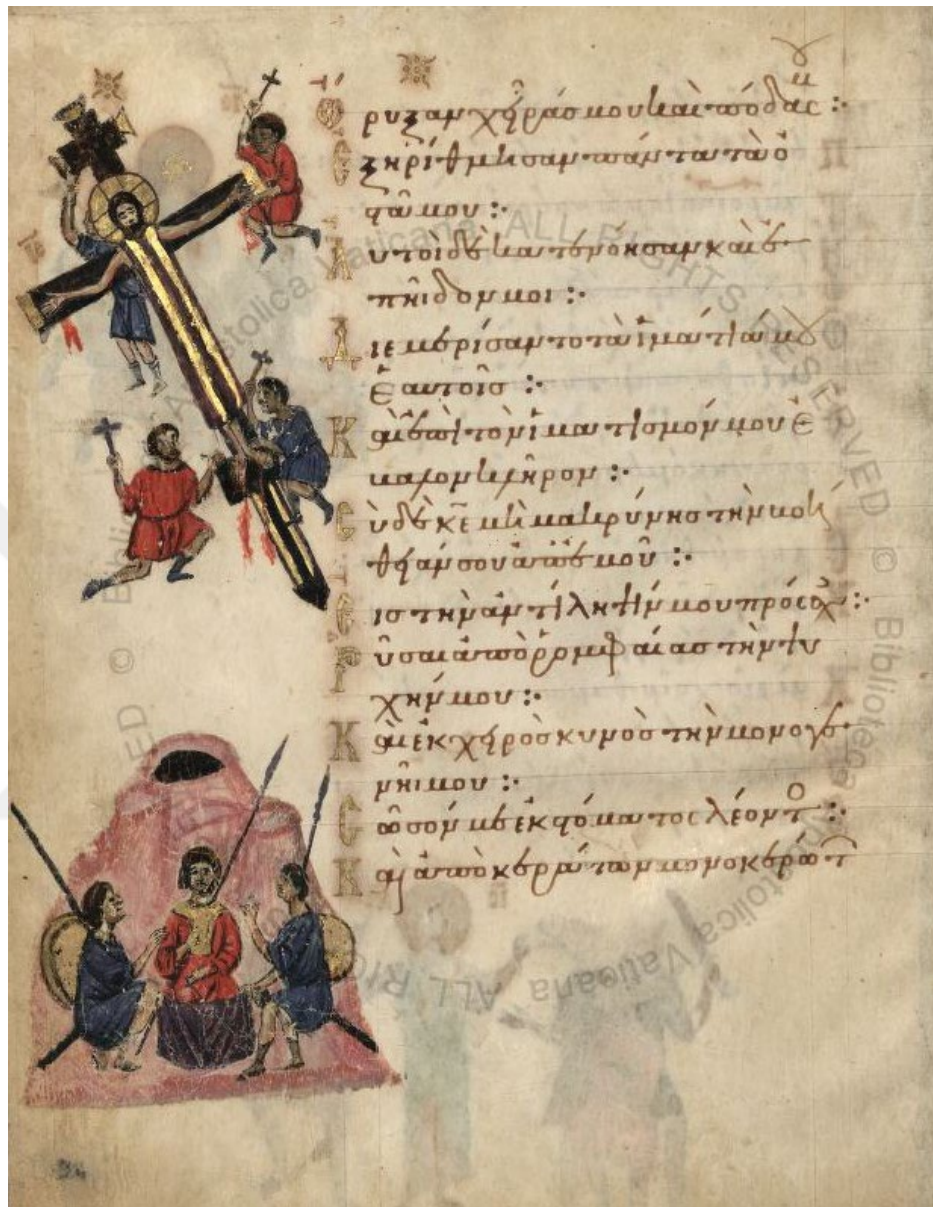 Ὄρυξαν χεῖράς μου καὶ πόδας :·
Ἐξηρίθμησαν πάντα τὰ ὀ
στᾶ μου :·
Αὐτοὶ δὲ κατενόησαν καὶ ἐ
πηιδόν μοι :·
Διεμερίσαντο τὰ ἱμάτιά μου
ἑαυτοῖς :·
Καὶ ἐπὶ τὸν ἱματισμόν μου ἔ
βαλον κλῆρον :·
Σὺ δὲ κ̅ε̅ μὴ μακρύνηις τὴν βοή
θειάν σου ἀπ' ἐμοῦ :·
Εἰς τὴν ἀντίληψίν μου πρόσχες :·
Ῥῦσαι ἀπὸ ῥομφαίας τὴν ψυ
χήν μου :·
Καὶ ἐκ χειρὸς κυνὸς τὴν μονογε
νῆι μου :·
Σῶσόν με ἐκ στόματος λέοντο :·
Καὶ ἀπὸ κεράτων μονοκερώτ
© Biblioteca Apostolica Vaticana ALL RIGHTS RESERVED